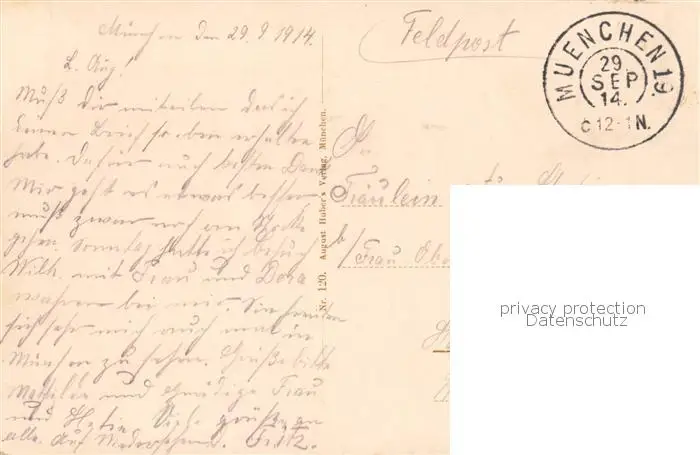 München den 29.9.1914.
L. Aug!
Muß Dir mitteilen daß ich
deinen Brief so eben erhalten
habe. Dafür auch besten Dank
Mir geht es etwas besser
muß zwar noch am Stocke
gehen. Sonntag hatte ich besuch
Wilh. mit Frau und Dora
waren bei mir. Sie freuten
sich sehr mich auch mal in
München zu sehen. Grüße bitte
Mathilde und gnädige Frau
und Viele grüße an
alle. Auf Wiedersehen. Fritz.
Nr. 120. August Huber's Verlag, München.
Feldpost
MUENCHEN 19.
29.
SEP
14.
12-1N.
Fräulein
b/Frau
privacy protection
Datenschutz